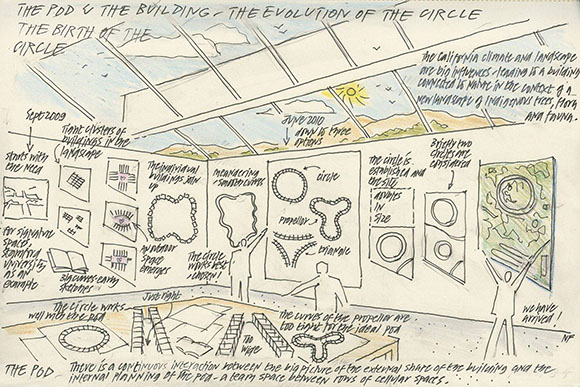 THE POD & THE BUILDING - THE EVOLUTION OF THE CIRCLE
THE BIRTH OF THE
CIRCLE
The California climate and landscape
are big influences - leading to a building
connected to nature in the context of a
new landscape of indigenous trees, flora
and fauna.
Sept 2009
starts with
the need
for signature
space,
Stanford
University
as an
example
Tight clusters of
buildings in the
landscape
SJ curves - early
The individual
buildings join
up
another
space
emerges
meandering
smooth curves
The circle
works best
- chosen!
JUNE 2010
down to three
options
circle
propeller
triangle
The circle is
established and
the site
doubles
in
size
Briefly two
circles are
considered
we have
arrived!
NF
The circle works
well with the pod
Just right
Too
wide
The curves of the propeller are
too tight for the ideal pod
THE POD - There is a continuous interaction between the big picture of the external shape of the building and the
internal planning of the pod - a team space between rows of cellular spaces.